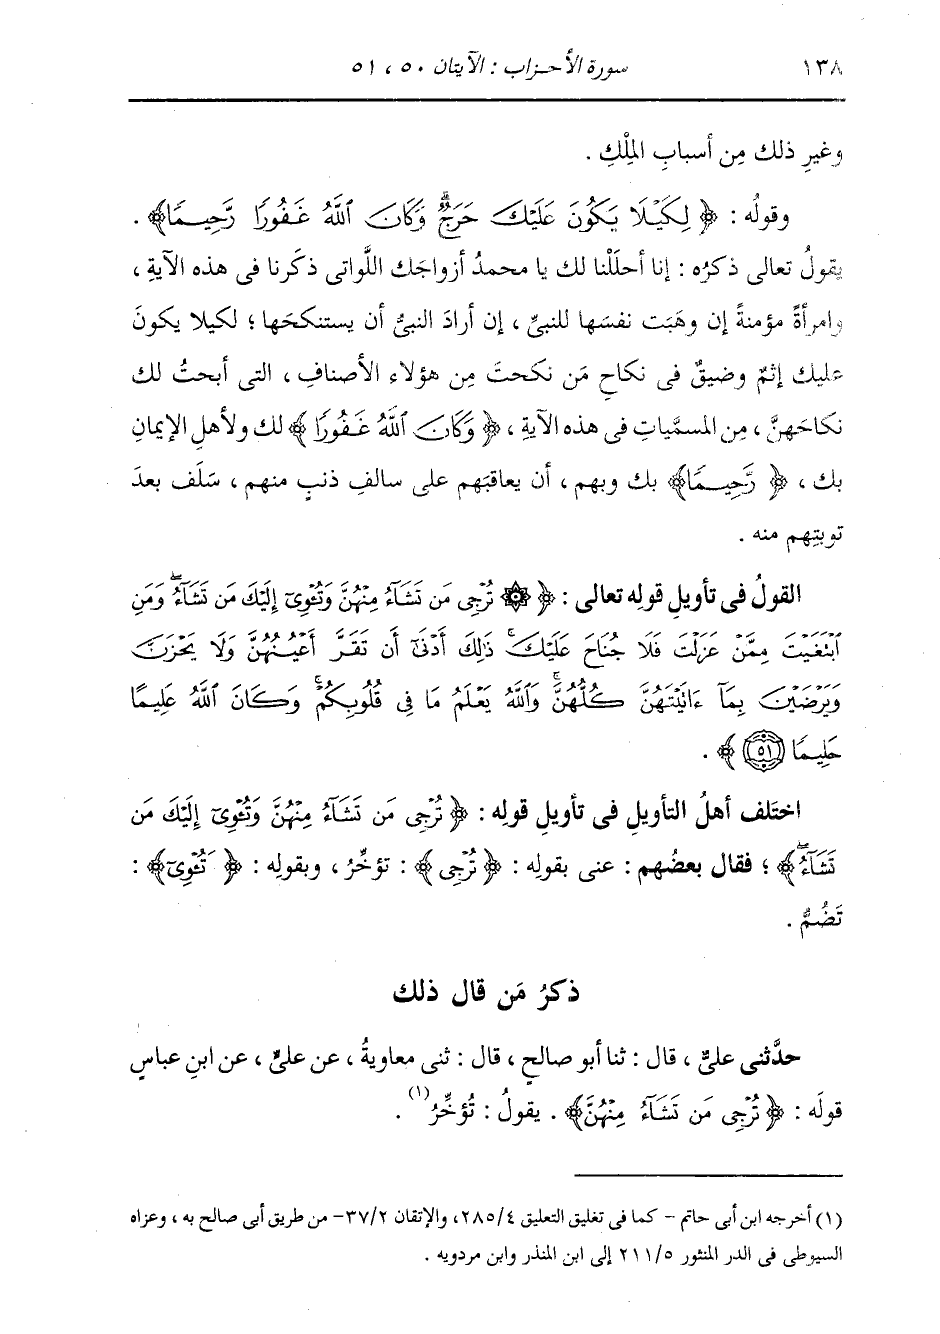 ١٣٨ سورة الأحزاب : الآيتان ٥٠ ، ٥١
وغيرِ ذلك مِن أسبابِ المِلْكِ .
وقولُه : ﴿ لِكَيْلَا يَكُونَ عَلَيْكَ حَرَجٌ وَكَانَ ٱللَّهُ غَفُورًا رَّحِيمًا﴾ .
يقولُ تعالى ذكرُه : إنا أحلَلْنا لك يا محمدُ أزواجَك اللَّواتى ذكَرنا فى هذه الآيةِ ،
وامرأةً مؤمنةً إن وهَبَت نفسَها للنبىِّ ، إن أرادَ النبىُّ أن يستنكحَها ؛ لكيلا يكونَ
عليك إثمٌ وضيقٌ فى نكاحِ مَن نكحتَ مِن هؤلاء الأصنافِ ، التى أبحتُ لك
نكاحَهنَّ ، مِن المسمَّياتِ فى هذه الآيةِ ، ﴿ وَكَانَ ٱللَّهُ غَفُورًا ﴾ لك ولأهلِ الإيمانِ
بك ، ﴿ رَّحِيمًا﴾ بك وبهم ، أن يعاقبَهم على سالفِ ذنبٍ منهم ، سَلَف بعدَ
توبتِهم منه .
القولُ فى تأويلِ قولِه تعالى : ﴿ ۞ تُرْجِى مَن تَشَآءُ مِنْهُنَّ وَتُـْٔوِىٓ إِلَيْكَ مَن تَشَآءُۖ وَمَنِ
ٱبْتَغَيْتَ مِمَّنْ عَزَلْتَ فَلَا جُنَاحَ عَلَيْكَۚ ذَٰلِكَ أَدْنَىٰٓ أَن تَقَرَّ أَعْيُنُهُنَّ وَلَا يَحْزَنَّ
وَيَرْضَيْنَ بِمَآ ءَاتَيْتَهُنَّ كُلُّهُنَّۚ وَٱللَّهُ يَعْلَمُ مَا فِى قُلُوبِكُمْۚ وَكَانَ ٱللَّهُ عَلِيمًا
حَلِيمًا ٥١ ﴾ .
اختَلف أهلُ التأويلِ فى تأويلِ قولِه : ﴿ تُرْجِى مَن تَشَآءُ مِنْهُنَّ وَتُـْٔوِىٓ إِلَيْكَ مَن
تَشَآءُۖ﴾ ؛ فقال بعضُهم : عنى بقولِه : ﴿ تُرْجِى ﴾ : تؤخِّرُ ، وبقولِه : ﴿ تُـْٔوِىٓ﴾ :
تَضُمُّ .
ذكرُ مَن قال ذلك
حدَّثنى علىٌّ ، قال : ثنا أبو صالحٍ ، قال : ثنى معاويةُ ، عن علىٍّ ، عن ابنِ عباسٍ
قولَه : ﴿ تُرْجِى مَن تَشَآءُ مِنْهُنَّ﴾ . يقولُ : تُؤخِّرُ(١) .
(١) أخرجه ابن أبى حاتم - كما فى تغليق التعليق ٢٨٥/٤، والإتقان ٣٧/٢- من طريق أبى صالح به ، وعزاه
السيوطى فى الدر المنثور ٢١١/٥ إلى ابن المنذر وابن مردويه .